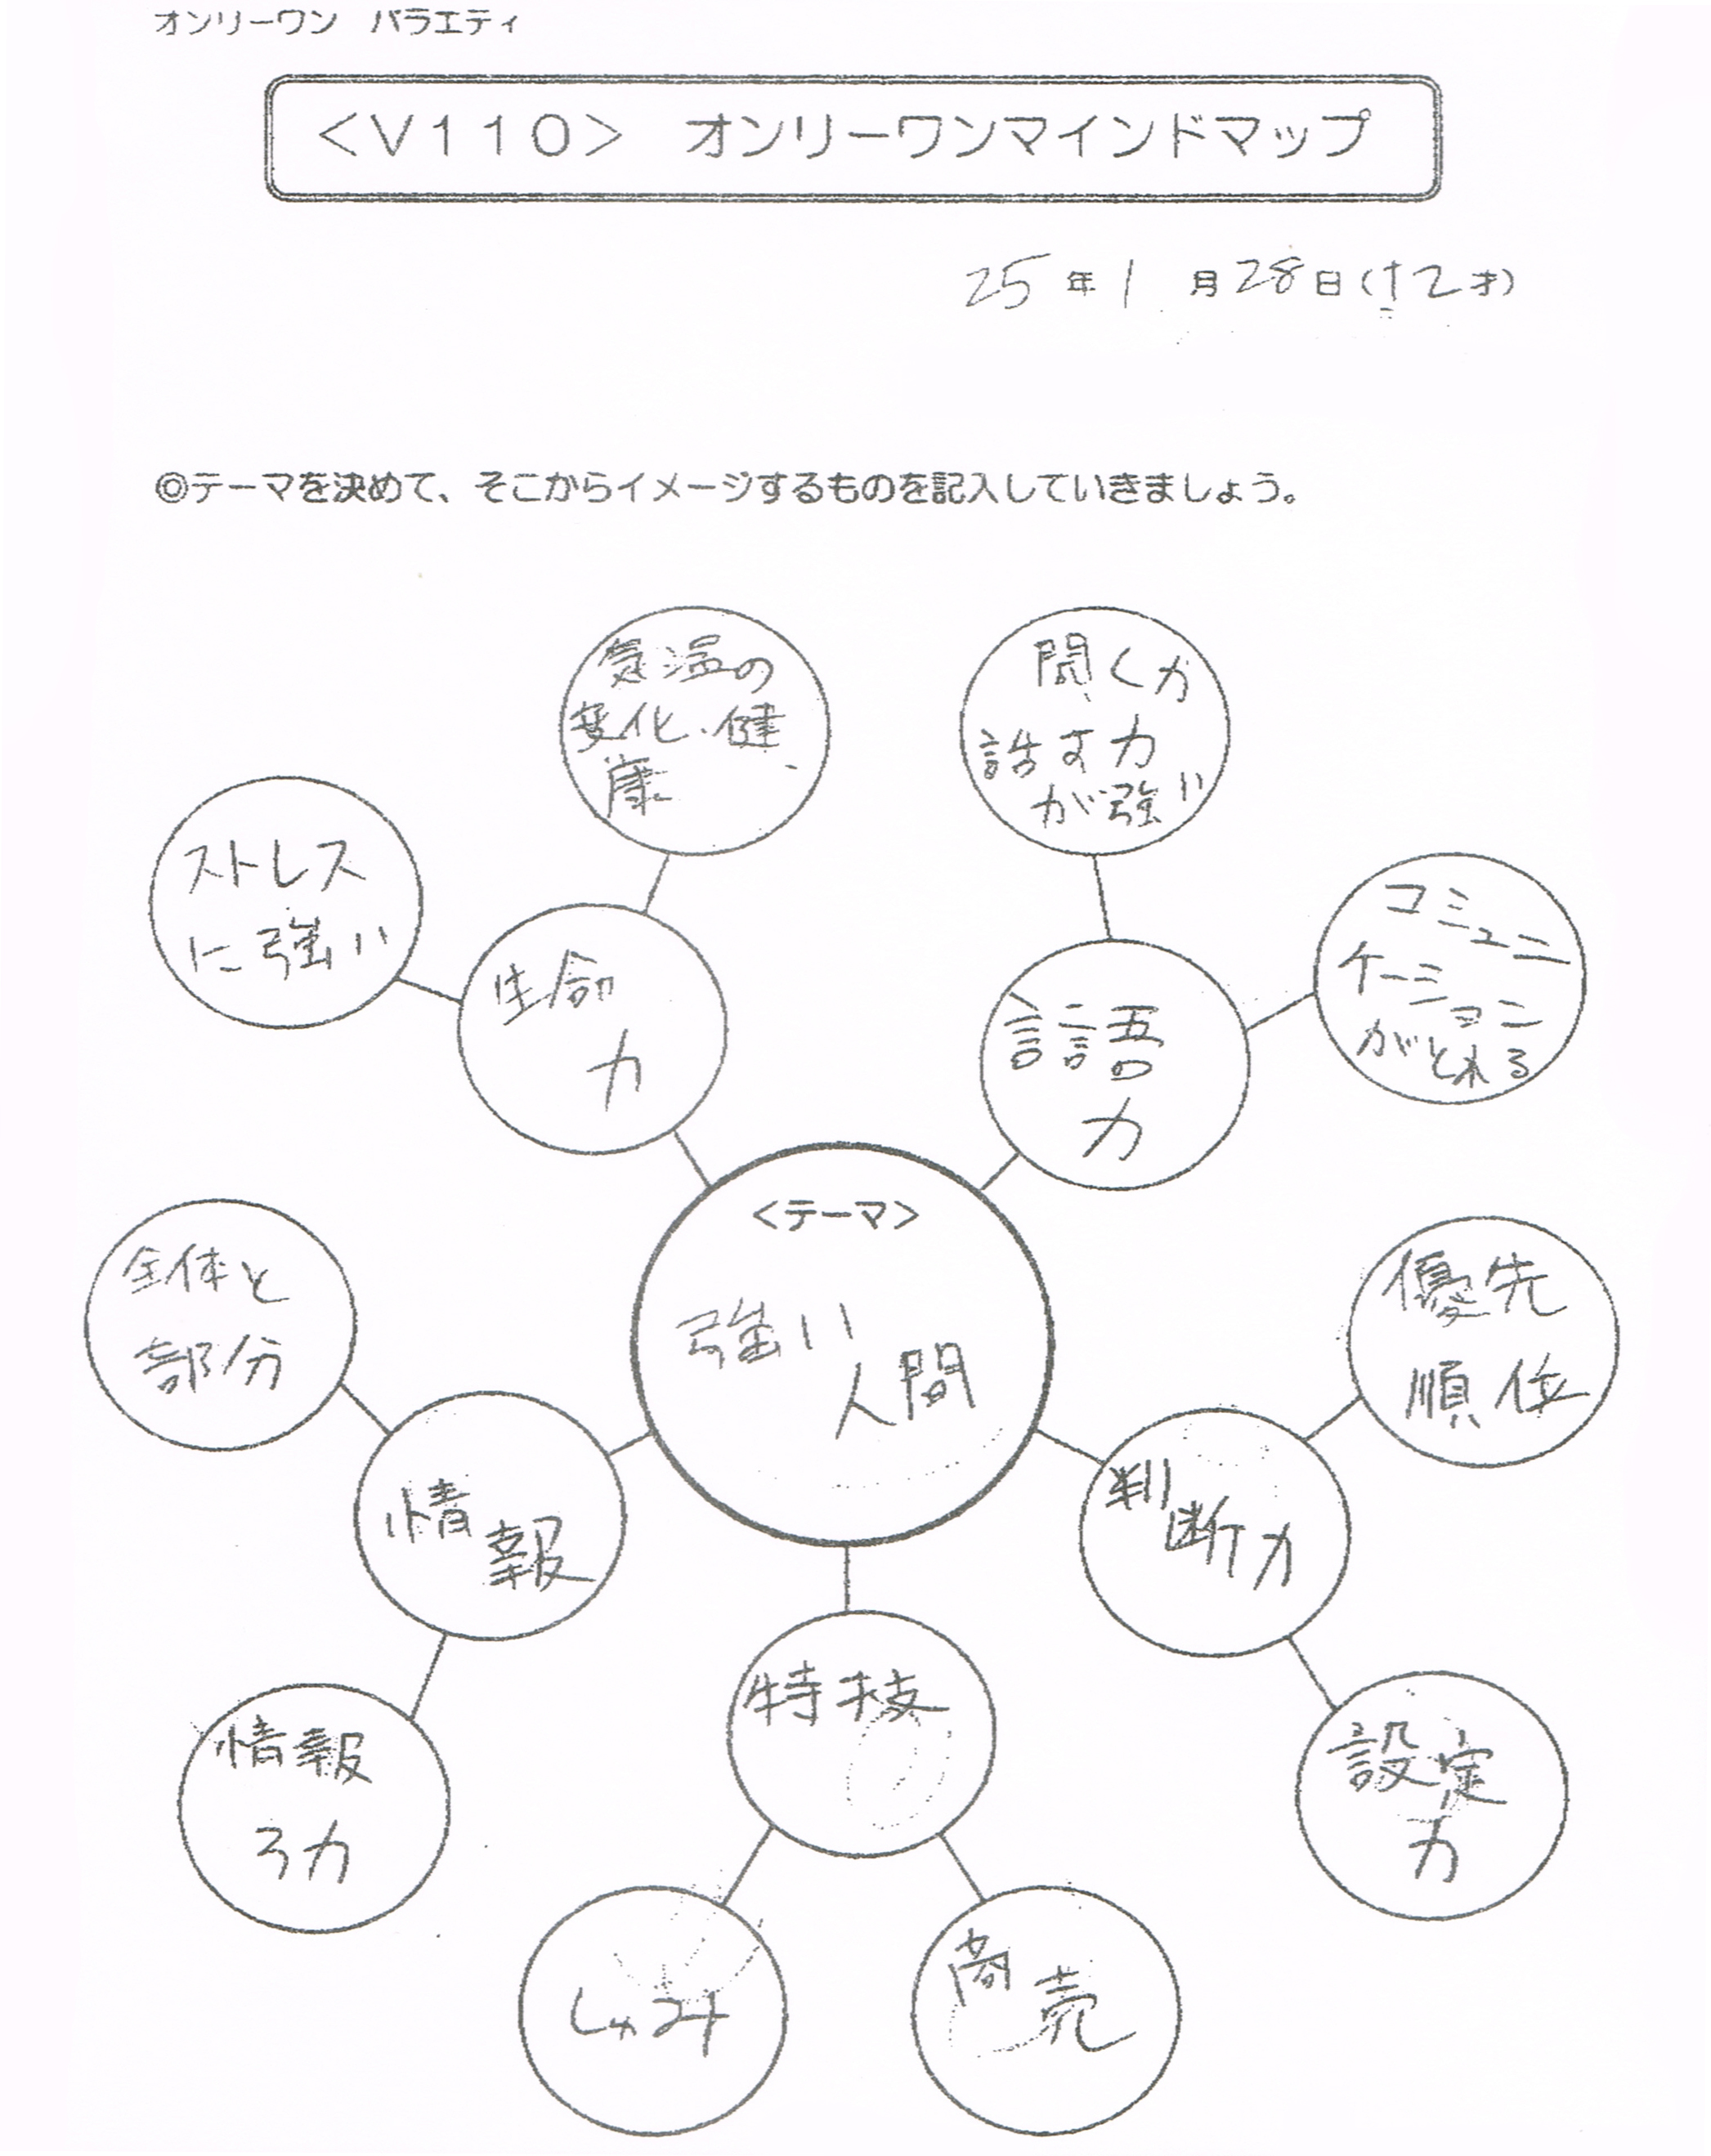 オンリーワン バラエティ
＜V110＞ オンリーワンマインドマップ
25年1月28日(12才)
◎テーマを決めて、そこからイメージするものを記入していきましょう。
気温の
変化・健
康
聞く力
話す力
が強い
ストレス
に強い
生命
力
言語
力
コミュニ
ケーション
がとれる
＜テーマ＞
強い
人間
全体と
部分
情
報
優先
順位
判断力
情報
力
特技
設定
力
しゅみ
商売